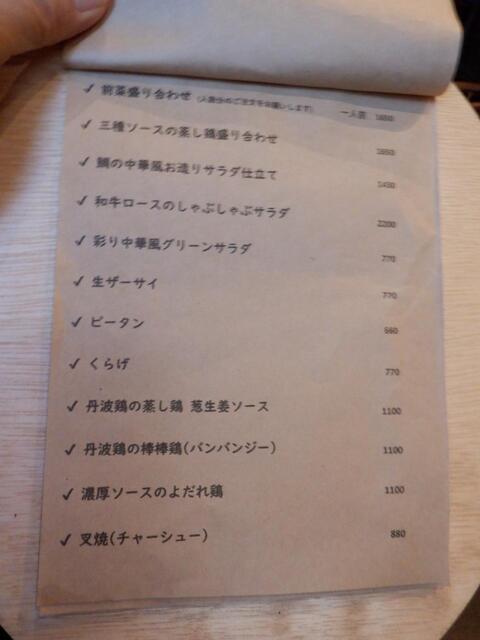 ✓ 前菜盛り合わせ (人数分のご注文をお願いします) 一人前 1650
✓ 三種ソースの蒸し鶏盛り合わせ 1650
✓ 鯛の中華風お造りサラダ仕立て 1430
✓ 和牛ロースのしゃぶしゃぶサラダ 2200
✓ 彩り中華風グリーンサラダ 770
✓ 生ザーサイ 770
✓ ピータン 660
✓ くらげ 770
✓ 丹波鶏の蒸し鶏 葱生姜ソース 1100
✓ 丹波鶏の棒棒鶏(バンバンジー) 1100
✓ 濃厚ソースのよだれ鶏 1100
✓ 叉焼(チャーシュー) 880